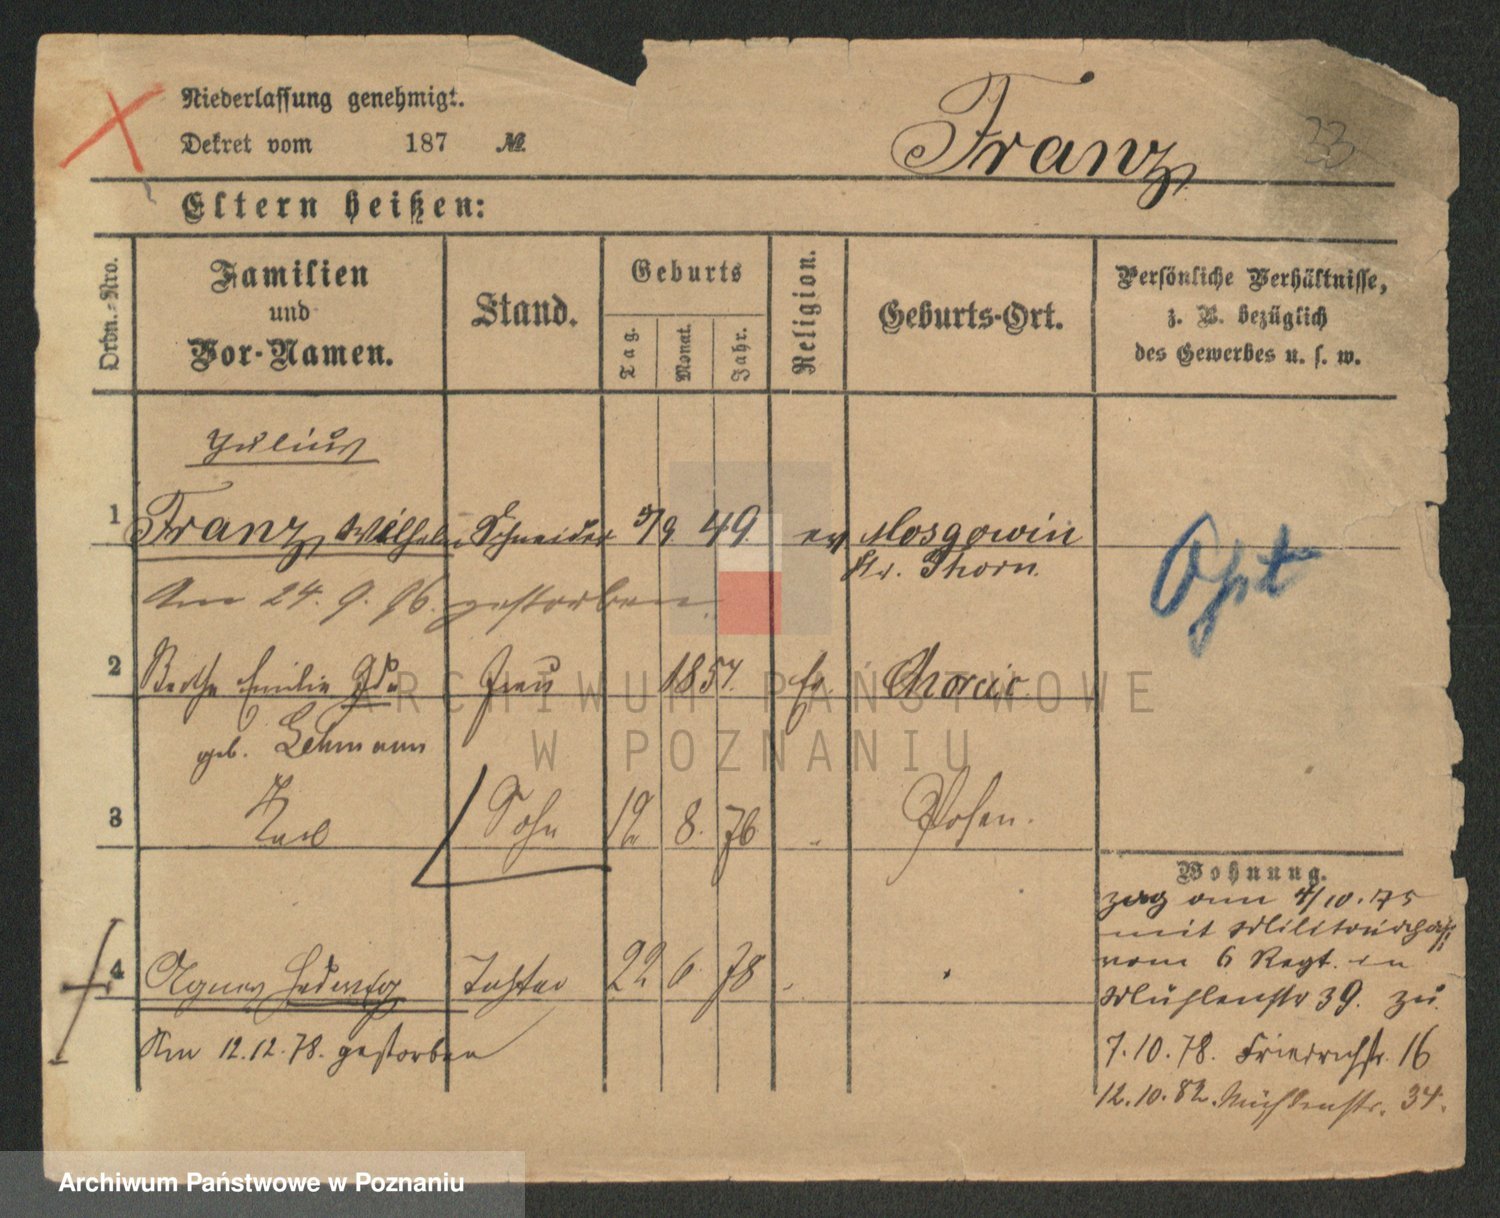 Niederlassung genehmigt.
Dekret vom 187 №
Franz
33
Eltern heißen:
Ordn.-Nro.
Familien
und
Vor-Namen.
Stand.
Geburts
Tag.
Monat.
Jahr.
Religion.
Geburts-Ort.
Persönliche Verhältnisse,
z. B. bezüglich
des Gewerbes u. s. w.
Julius
1 Franz Wilhelm Schneider 5/9 49 ev Mosgowin
Kr. Thorn.
Am 24. 9. 96. gestorben
2 Bertha Emilie Ida Frau 1857. Ev.
geb. Lehmann
3 Karl Sohn 12 8. 76 Posen.
4 Agnes Hedwig Tochter 22 6 78
Am 12.12.78. gestorben
Wohnung.
zog am 4/10.75
mit
vom 6 Regt. in
Mühlenstr 39. zu
7.10.78. Friedrichstr. 16
12.10.82. Mühlenstr. 34.
ARCHIWUM PAŃSTWOWE
W POZNANIU
Archiwum Państwowe w Poznaniu